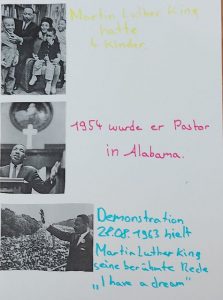 Martin Luther King
hatte
4 Kinder.
1954 wurde er Pastor
in Alabama.
Demonstration
28.08.1963 hielt
Martin Luther King
seine berühmte Rede
„I have a dream"